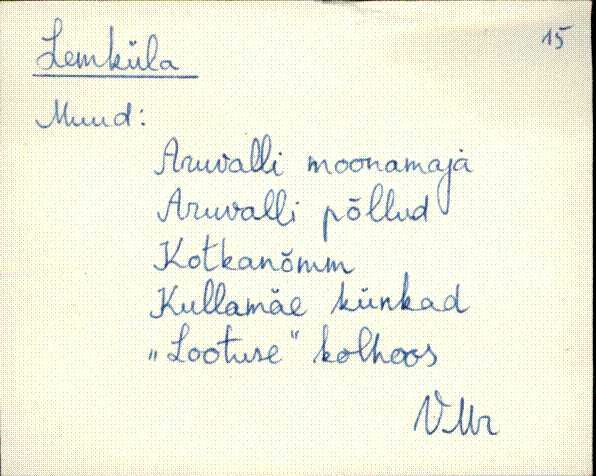 Lemküla 15
Muud:
Aruvalli moonamaja
Aruvalli põllud
Kotkanõmm
Kullamäe künkad
„Lootuse" kolhoos
VMr